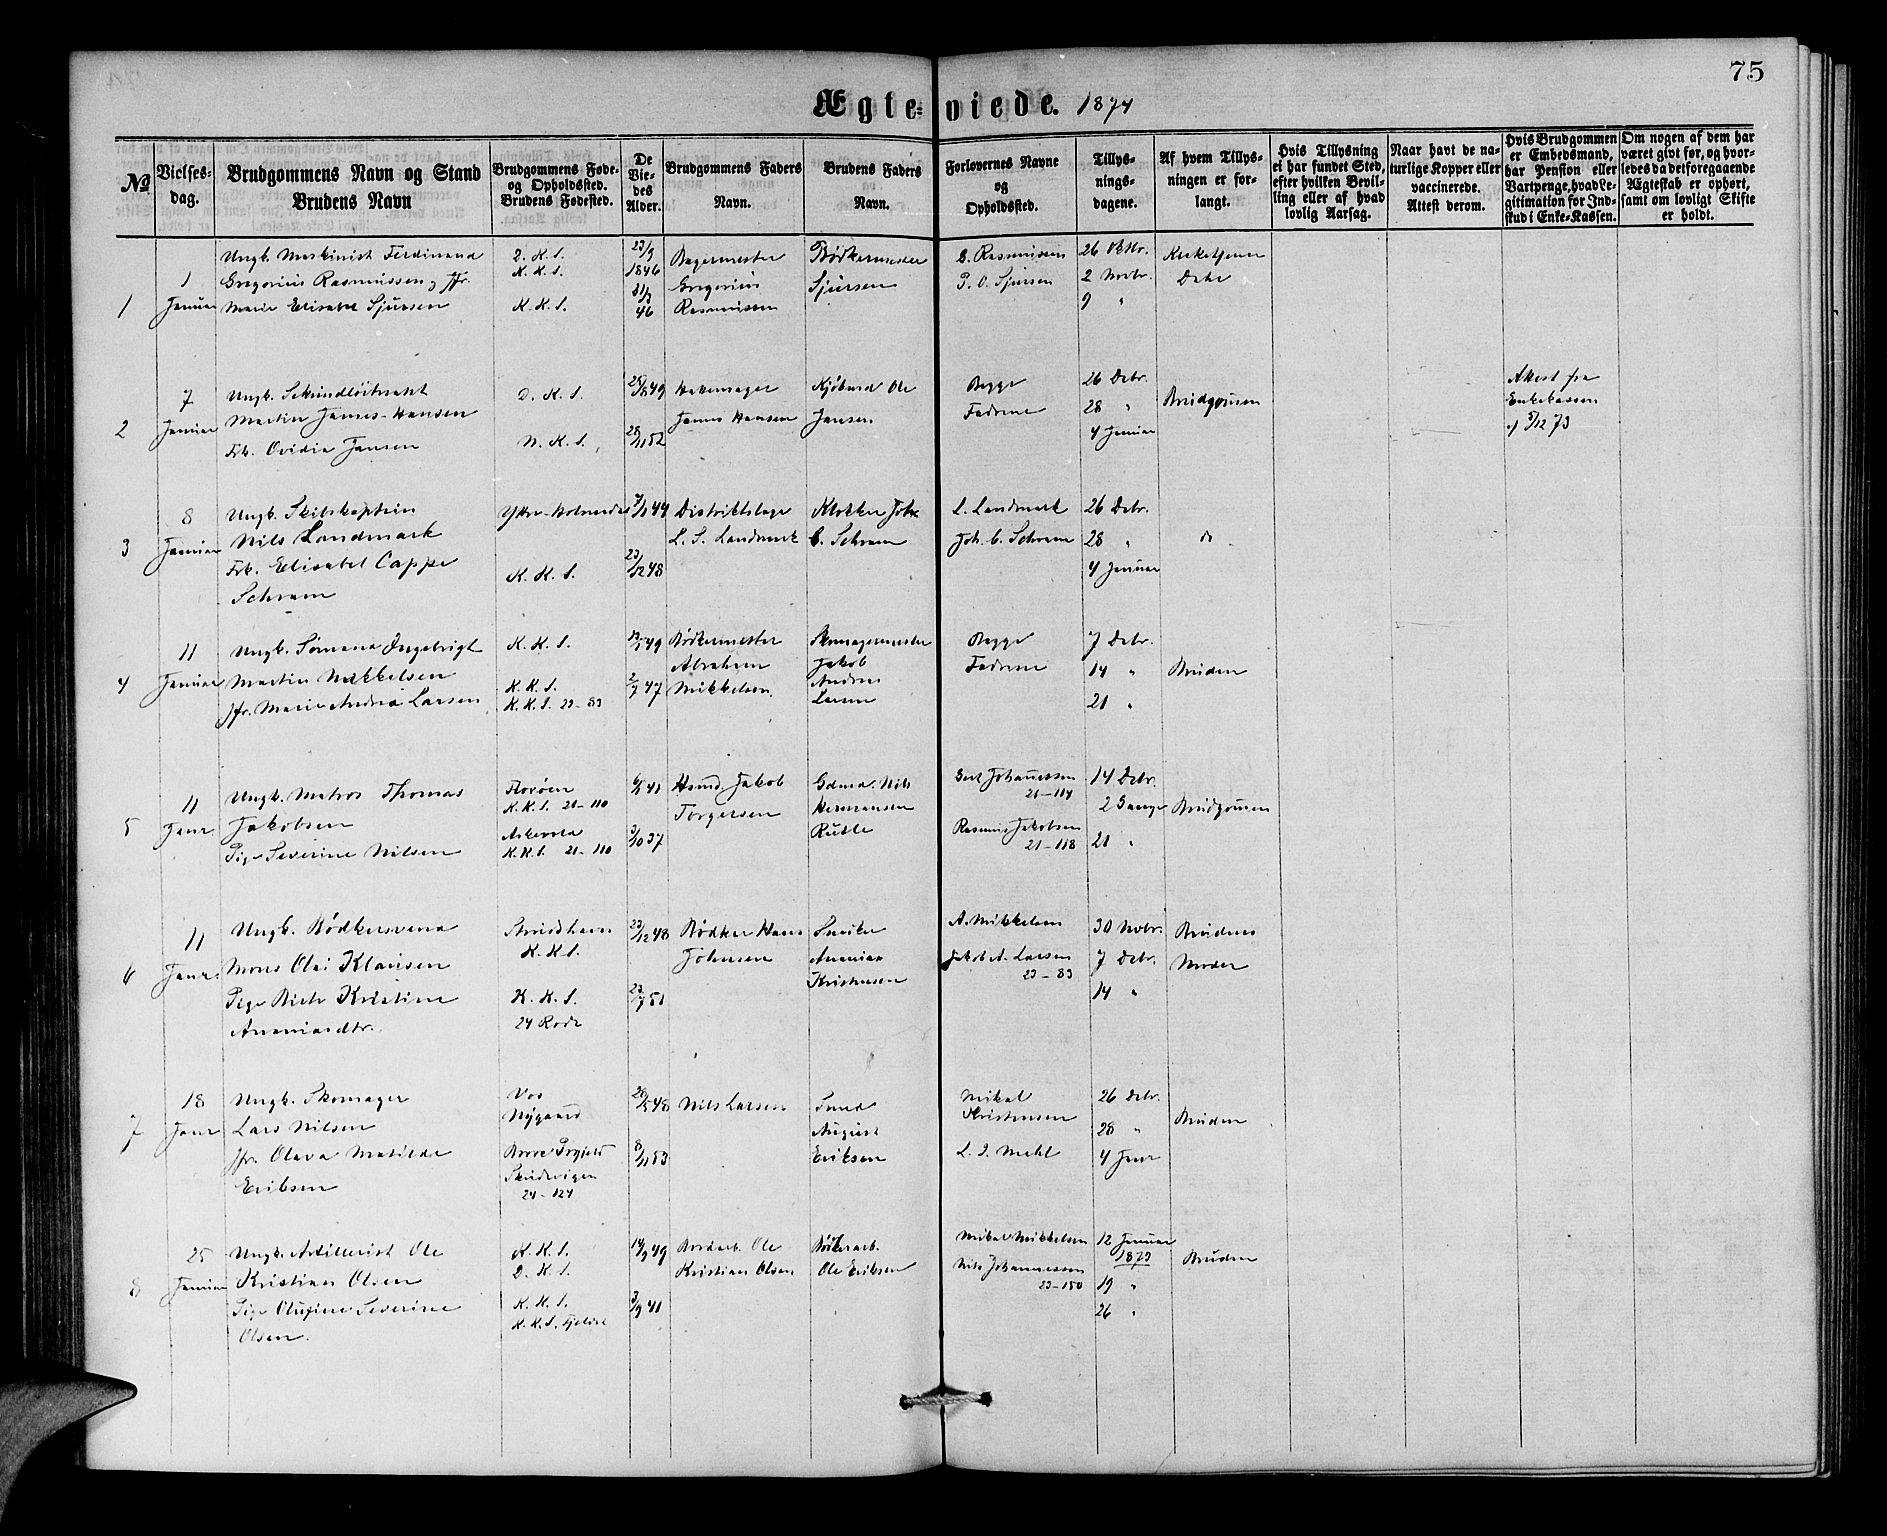 75
Ægte-viede. 1874
No
Vielses-
dag.
Brudgommens Navn og Stand
Brudens Navn
Brudgommens Føde-
og Opholdssted.
Brudens Fødested.
De
Vie-
des
Alder.
Brudgommens Faders
Navn.
Brudens Faders
Navn.
Forlovernes Navne
og
Opholdssted.
Tillys-
nings-
dagene.
Af hvem Tillys-
ningen er for-
langt.
Hvis Tillysning
ei har fundet Sted,
efter hvilken Bevil-
ling eller af hvad
lovlig Aarsag.
Naar havt de na-
turlige Kopper eller
vaccinerede.
Attest derom.
Hvis Brudgommen
er Embedsmand,
har Pension eller
Vartpenge, hvad Le-
gitimation for Ind-
skud i Enke-Kassen.
Om nogen af dem har
været givt før, og hvor-
ledes da det foregaaende
Ægteskab er ophørt,
samt om lovligt Skifte
er holdt.
1
1
Januar
Ungk. Maskinist Ferdinand
Gregorius Rasmussen, Jfr.
Marie Elisabet Sjursen
D. K. S.
K. K. S.
K. K. S.
23/9
1846
31/3
46
Bagermester
Gregorius
Rasmussen
Bødkermester
Sjursen
G. Rasmussen
P. O. Sjursen
26 Oktbr.
2 Novbr.
9 "
Kirketjener
Dahe
2
7
Januar
Ungk. Sekundløitnant
Martin James Hansen
Frk. Ovidia Jansen
D. K. S.
N. K. S.
49
28/11 52
James Hansen
Kjøbmd Ole
Jansen
Begge
Fædrene
26 Debr.
28 "
4 Januar
Brudgomen
Attest fra
Enkekassen
af 5/12 73
3
8
Januar
Ungk. Skibskaptein
Nils Landmark
Frk. Elisabet Cappe
Schram
Ytre-Holmedal
7/1 44
23/12 48
Distriktslæge
L. S. Landmark
Klokker Joh.
C. Schram
L. Landmark
Joh. C. Schram
26 Debr.
28 "
4 Januar
do
K. K. S.
4
11
Januar
Ungk. Sømand Ingebrigt
Martin Mikkelsen
Jfr. Marie Andrea Larsen
K. K. S.
K. K. S.
K. K. S. 23-83
49
2/7 47
Bødkermester
Abraham
Mikkelsen
Skomagermester
Jakob
Andreas
Larsen
Begge
Fædrene
7 Debr.
14 "
21 "
Bruden
5
11
Janr.
Ungk. Matros Thomas
Jakobsen
Pige Severine Nilsen
Florøen
K. K. S. 21-110
Askevold
K. K. S. 21-110
41
3/10 37
Husmd. Jakob
Torgersen
Gdmd. Nils
Hermansen
Johannessen
21-114
Rasmus Jakobsen
21-118
14 Debr.
2 Gange
21 "
Brudgomen
6
11
Janr.
Ungk. Bødkersvend
Mons Olai Klausen
Pige Birte Kristine
Ananiasdtr.
K. K. S.
K. K. S.
24 Rode
23/12 48
23/7 51
Bødker Hans
Johnsen
Snedker
Ananias
Kristensen
A. Mikkelsen
Jakob A. Larsen
23-83
30 Novbr.
7 Debr.
14 "
Brudens
Moder
7
18
Janr
Ungk. Skomager
Lars Nilsen
Jfr. Olava Matilde
Eriksen
Vos
Nygaard
Skudevigen
24-124
48
8/11 53
Nils Larsen
Smed
August
Eriksen
Mikal
Kristensen
L. J. Mehl
26 Debr.
28 "
4 Janr
Bruden
8
25
Januar
Ungk. Artillerist Ole
Kristian Olsen
Pige Olufine Severine
Olsen.
K. K. S.
D. K. S.
K. K. S.
K. K. S.
14/9 49
3/9 41
Bordarb. Ole
Kristian Olsen
Ole Eriksen
Mikal Mikkelsen
Nils Johannessen
23-150
12 Januar
1873
19 "
26 "
Bruden